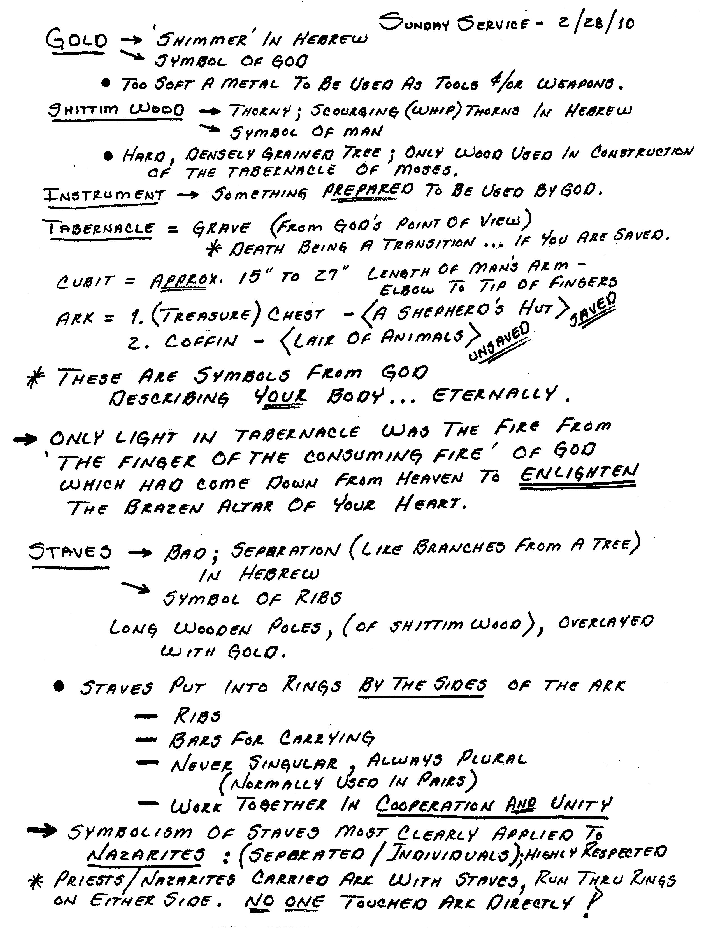 SUNDAY SERVICE - 2/28/10
GOLD → 'SHIMMER' IN HEBREW
↘ SYMBOL OF GOD
• TOO SOFT A METAL TO BE USED AS TOOLS &/OR WEAPONS.
SHITTIM WOOD → THORNY; SCOURGING (WHIP) THORNS IN HEBREW
↘ SYMBOL OF MAN
• HARD, DENSELY GRAINED TREE; ONLY WOOD USED IN CONSTRUCTION
OF THE TABERNACLE OF MOSES.
INSTRUMENT → SOMETHING PREPARED TO BE USED BY GOD.
TABERNACLE = GRAVE (FROM GOD'S POINT OF VIEW)
* DEATH BEING A TRANSITION... IF YOU ARE SAVED.
CUBIT = APPROX. 15" TO 27" LENGTH OF MAN'S ARM -
ELBOW TO TIP OF FINGERS
ARK = 1. (TREASURE) CHEST - <A SHEPHERD'S HUT> SAVED
2. COFFIN - <LAIR OF ANIMALS> UNSAVED
* THESE ARE SYMBOLS FROM GOD
DESCRIBING YOUR BODY... ETERNALLY.
→ ONLY LIGHT IN TABERNACLE WAS THE FIRE FROM
'THE FINGER OF THE CONSUMING FIRE' OF GOD
WHICH HAD COME DOWN FROM HEAVEN TO ENLIGHTEN
THE BRAZEN ALTAR OF YOUR HEART.
STAVES → BAD; SEPARATION (LIKE BRANCHES FROM A TREE)
IN HEBREW
↘ SYMBOL OF RIBS
LONG WOODEN POLES, (OF SHITTIM WOOD), OVERLAYED
WITH GOLD.
• STAVES PUT INTO RINGS BY THE SIDES OF THE ARK
- RIBS
- BARS FOR CARRYING
- NEVER SINGULAR, ALWAYS PLURAL
(NORMALLY USED IN PAIRS)
- WORK TOGETHER IN COOPERATION AND UNITY
→ SYMBOLISM OF STAVES MOST CLEARLY APPLIED TO
NAZARITES: (SEPARATED/INDIVIDUALS); HIGHLY RESPECTED
* PRIESTS/NAZARITES CARRIED ARK WITH STAVES, RUN THRU RINGS
ON EITHER SIDE. NO ONE TOUCHED ARK DIRECTLY!